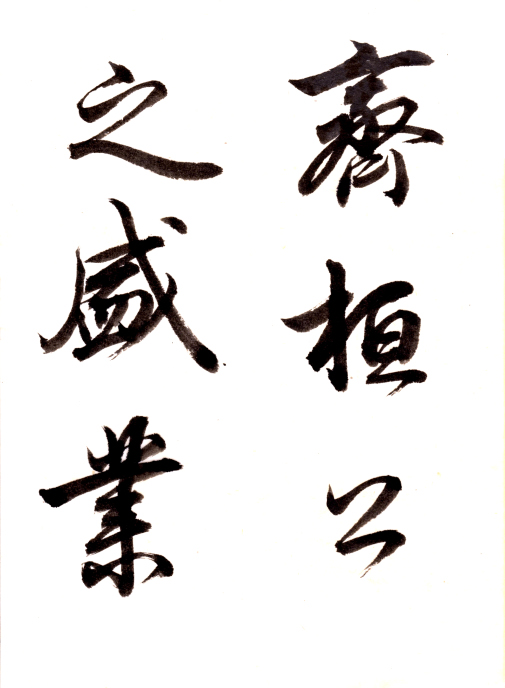 齊桓公
之盛業